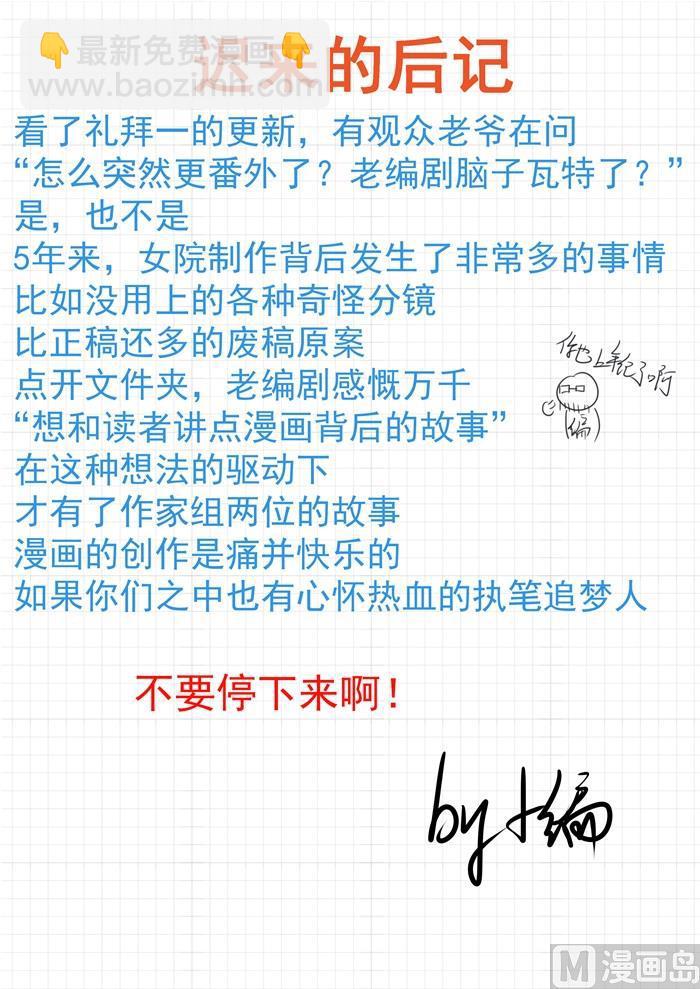 👇最新免费漫画👇
www.baozimh.com
迟来的后记
看了礼拜一的更新，有观众老爷在问
“怎么突然更番外了？老编剧脑子瓦特了？”
是，也不是
5年来，女院制作背后发生了非常多的事情
比如没用上的各种奇怪分镜
比正稿还多的废稿原案
点开文件夹，老编剧感慨万千
你也上年纪了啊
编
“想和读者讲点漫画背后的故事”
在这种想法的驱动下
才有了作家组两位的故事
漫画的创作是痛并快乐的
如果你们之中也有心怀热血的执笔追梦人
不要停下来啊！
by 小编
M 漫画岛